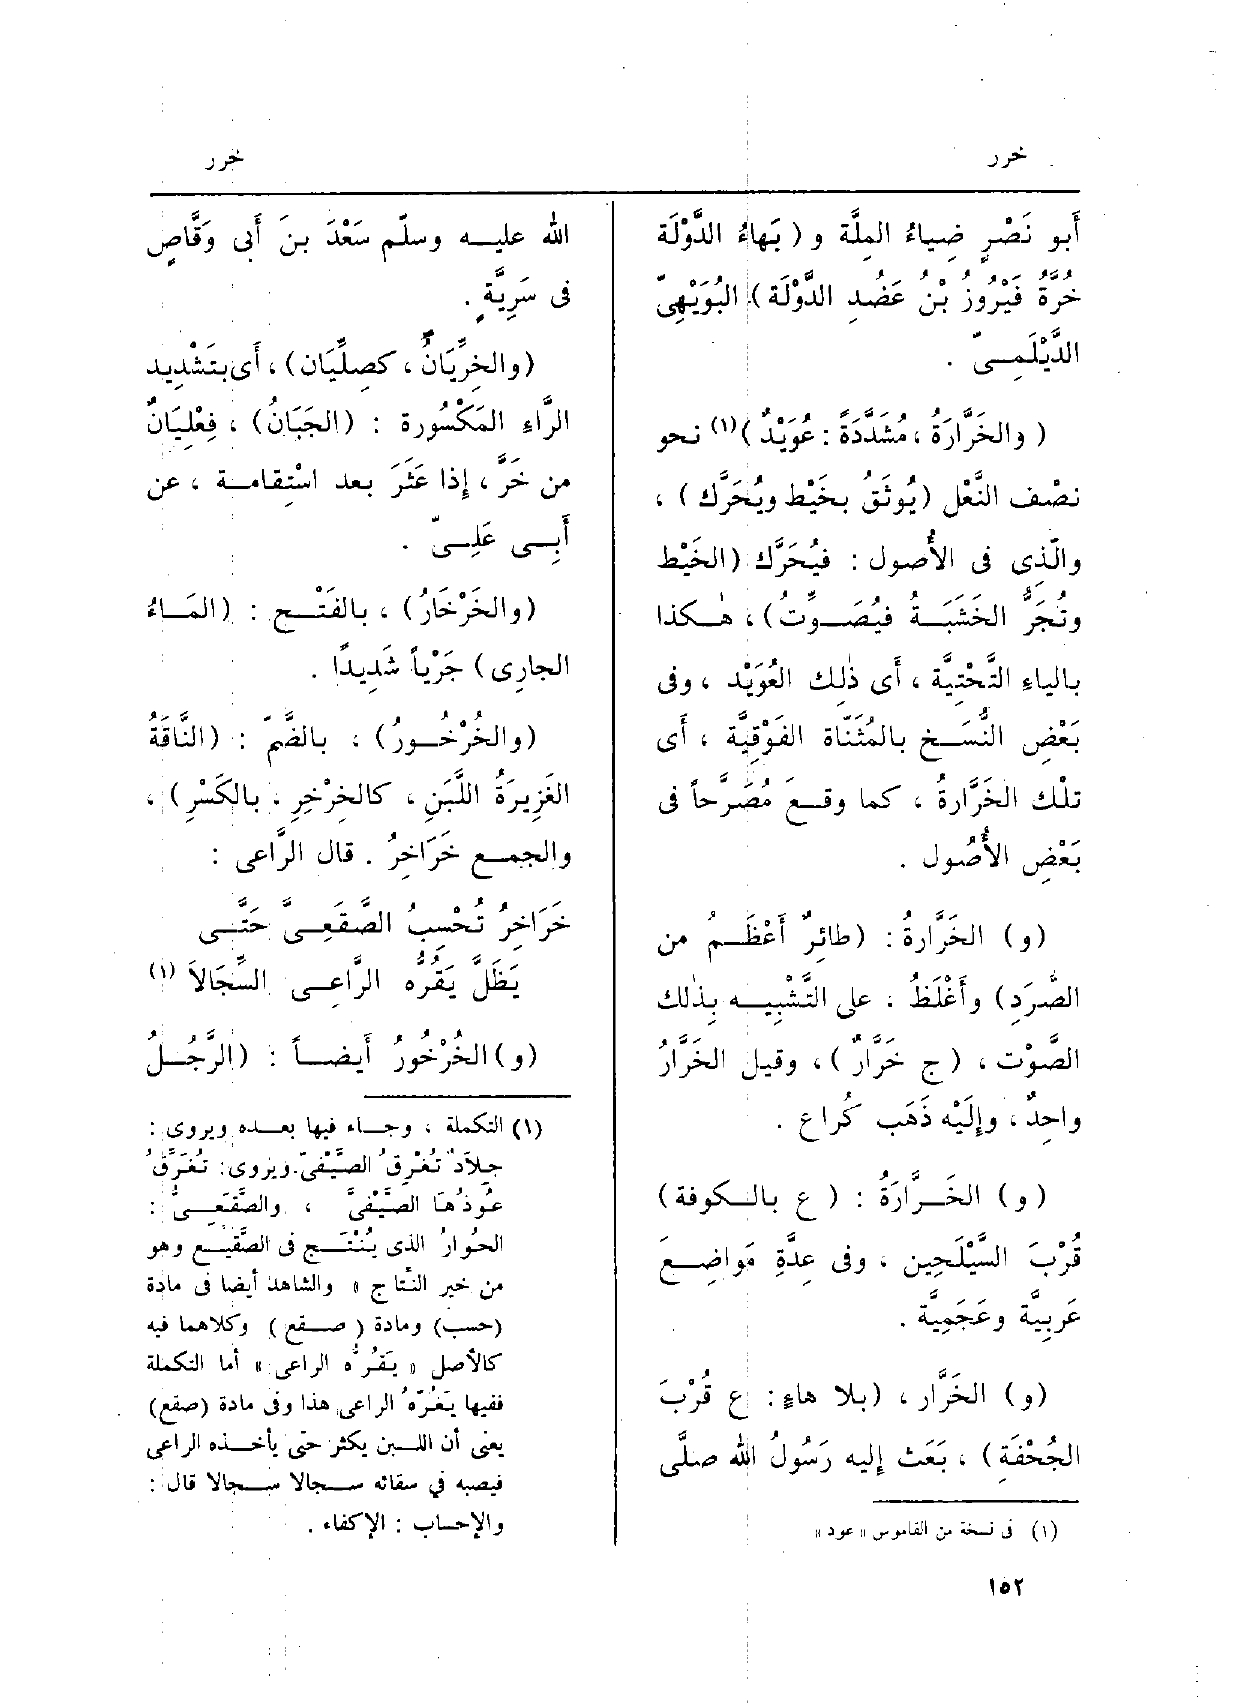 خرر
خرر
أَبو نَصْرٍ ضِياءُ المِلَّة و (بَهاءُ الدَّوْلَة
خُرَّةُ فَيْرُوزُ بْنُ عَضُدِ الدَّوْلَة) البُوَيْهِىّ
الدَّيْلَمِـىّ .
( والخَرَّارَةُ ، مُشَدَّدَةً : عُوَيْدٌ )(١) نحو
نصْف النَّعْل (يُوثَقُ بخَيْط ويُحَرَّك ) ،
والَّذى فى الأُصول : فيُحَرَّك (الخَيْط
وتُجَرُّ الخَشَبَـةُ فيُصَـوِّتُ) ، هٰـكذا
بالياءِ التَّحْتِيَّة ، أَى ذٰلك العُوَيْد ، وفى
بَعْضِ النُّسَـخ بالمُثَنَّاة الفَوْقِيَّة ، أَى
تلْك الخَرَّارةُ ، كما وقـعَ مُصَرَّحاً فى
بَعْضِ الأُصُول .
(و) الخَرَّارةُ : (طائِرٌ أَعْظَـم من
الصُّرَدِ) وأَغْلَظُ ، على التَّشْبِيـه بِذٰلك
الصَّوْت ، ( ج خَرَّارٌ ) ، وقيل الخَرَّارُ
واحِدٌ ، وإِلَيْه ذَهَب كُراع .
(و) الخَـرَّارَةُ : ( ع بالـكوفة)
قُرْبَ السَّيْلَحِين ، وفى عِدَّةِ مَواضِـعَ
عَرَبِيَّة وعَجَمِيَّة .
(و) الخَرَّار ، (بلا هاءٍ : ع قُرْبَ
الجُحْفَةِ) ، بَعَث إِليه رَسُولُ الله صلَّى
(١) فى نسخة من القاموس «عود»
١٥٢
الله عليـه وسلَّم سَعْدَ بنَ أَبى وَقَّاصٍ
فى سَرِيَّةٍ .
(والخِرِّيَانُ ، كصِلِّيَان) ، أَى بتَشْدِيد
الرَّاءِ المَكْسُورة : (الجَبَانُ) ، فِعْلِيَانٌ
من خَرَّ ، إِذا عَثَرَ بعد اسْتِقامـة ، عن
أَبِـى عَلِـىّ .
(والخَرْخَارُ) ، بالفَتْـح : (المَـاءُ
الجارِى) جَرْياً شَدِيدًا .
(والخُرْخُـورُ) ، بالضَّمّ : (النَّاقَةُ
الغَزِيرَةُ اللَّبَنِ ، كالخِرْخِرِ ، بالكَسْرِ) ،
والجمـع خَرَاخِرُ . قال الرَّاعى :
خَرَاخِرُ تُحْسِبُ الصَّقَعِـىَّ حَتَّـى
يَظَلَّ يَقُرُّه الرَّاعِـى السِّجَالاَ (١)
(و) الخُرْخُورُ أَيضـاً : (الرَّجُـلُ
(١) التكملة ، وجـاء فيها بعـده ويروى :
جِلاَدٌ تُفْرِقُ الصَّيْفىّ. ويروى : تُغَرِّقُ
عُوذُهَا الصَّيْفىَّ ، والصَّقَعِـىُّ :
الحُوارُ الذى يُنْتَـج فى الصَّقِيـع وهو
من خير النَّتاج » والشاهد أيضا فى مادة
(حسب) ومادة ( صـقع ) وكلاهما فيه
كالأصل « يَقُرُّه الراعى » أما التكملة
ففيها يَغُرّه الراعى هذا وفى مادة (صقع)
يعنى أن اللـبن يكثر حتى يأخـذه الراعى
فيصبه في سقائه سـجالا سـجالا قال :
والإحساب : الإكفاء .